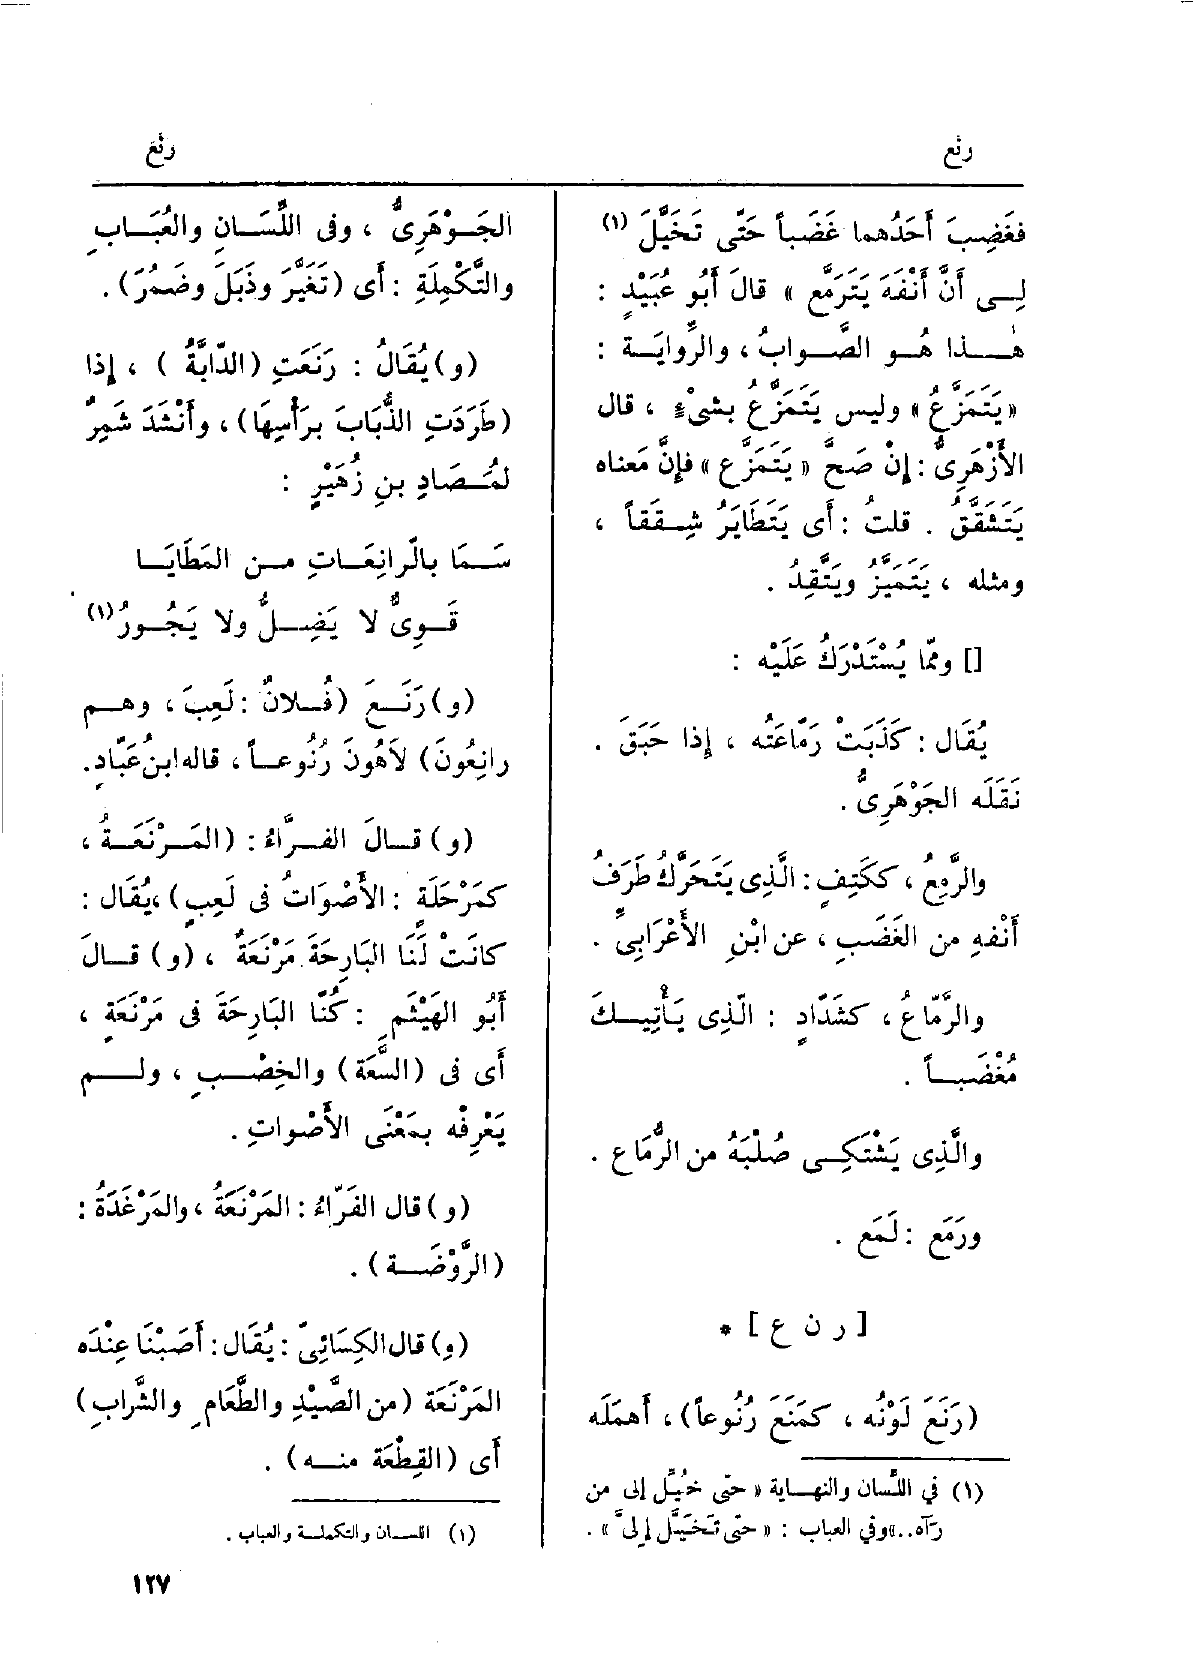 رنع
رنع
فغَضِبَ أَحَدُهما غَضَباً حَتَّى تَخَيَّلَ (١)
لِـى أَنَّ أَنْفَهَ يَتَرَمَّع » قالَ أَبُو عُبَيْدٍ :
هٰـذا هُـو الصَّـوابُ ، والرِّوايَـة :
« يَتَمَزَّعُ » وليس يَتَمَزَّعُ بشىْءٍ ، قال
الأَزْهَرِىُّ : إِنْ صَحَّ « يَتَمَزَّع » فإِنَّ مَعناه
يَتَشَقَّقُ . قلتُ : أَى يَتَطَايَرُ شِـقَقاً ،
ومثله ، يَتَمَيَّزُ ويَتَّقِدُ .
[] ومّما يُسْتَدْرَكُ عَلَيْه :
يُقَال : كَذَبَتْ رَمّاعَتُه ، إِذا حَبَقَ .
نَقَلَه الجَوْهَرِىُّ .
والرَّمِعُ ، ككَتِفٍ : الَّذِى يَتَحَرَّكُ طَرَفُ
أَنْفهِ من الغَضَبِ ، عن ابْنِ الأَعْرَابِىِّ .
والرَّمّاعُ ، كشَدّادٍ : الّذِى يَـأْتِيـكَ
مُغْضَبـاً .
والَّذِى يَشْتَكِـى صُلْبَهُ من الرُّمَاع .
ورَمَع : لَمَع .
[ ر ن ع ] *
(رَنَعَ لَوْنُه ، كمَنَعَ رُنُوعاً) ، أَهمَلَه
(١) في اللسَّان والنهـاية « حتى خُيّل إلى من
رآه .. » وفي العباب : « حتى تَخَيَّل إلىَّ » .
الجَـوْهَرِىُّ ، وفى اللِّسَـانِ والعُبَـابِ
والتَّكْمِلَةِ : أَى (تَغَيَّرَ وذَبَلَ وضَمُرَ) .
(و) يُقَالُ : رَنَعَتِ (الدّابَّةُ ) ، إِذا
(طَرَدَتِ الذُّبَابَ برَأْسِهَا) ، وأَنْشَدَ شَمِرٌ
لمُـصَادِ بنِ زُهَيْرٍ :
سَـمَا بالّرانِعَـاتِ مـن المَطَايَـا
قَـوِىٌّ لا يَضِـلُّ ولا يَجُـورُ (١)
(و) رَنَـعَ (فُـلانٌ : لَعِبَ ، وهـم
رانِعُونَ) لاَهُونَ رُنُوعـاً ، قاله ابنُ عَبّادٍ .
(و) قـالَ الفَـرَّاءُ : (المَـرْنَعَـةُ ،
كمَرْحَلَةٍ : الأَصْوَاتُ فى لَعِبٍ) ، يُقَال :
كانَتْ لَنَا البَارِحَةَ مَرْنَعَةٌ ، (و) قـالَ
أَبُو الهَيْثَمِ : كُنَّا البَارِحَةَ فى مَرْنَعَةٍ ،
أَى فى (السَّعَة) والخِصْـبِ ، ولـم
يَعْرِفْه بمَعْنَى الأَصْواتِ .
(و) قال الفَرّاءُ : المَرْنَعَةُ ، والمَرْغَدَةُ :
(الرَّوْضَـة) .
(و) قال الكِسَائِىّ : يُقَال : أَصَبْنَا عِنْدَه
المَرْنَعَة (من الصَّيْدِ والطَّعَامِ والشَّرابِ)
أَى (القِطْعَة منـه) .
(١) اللسـان والتكملـة والعباب .
١٢٧